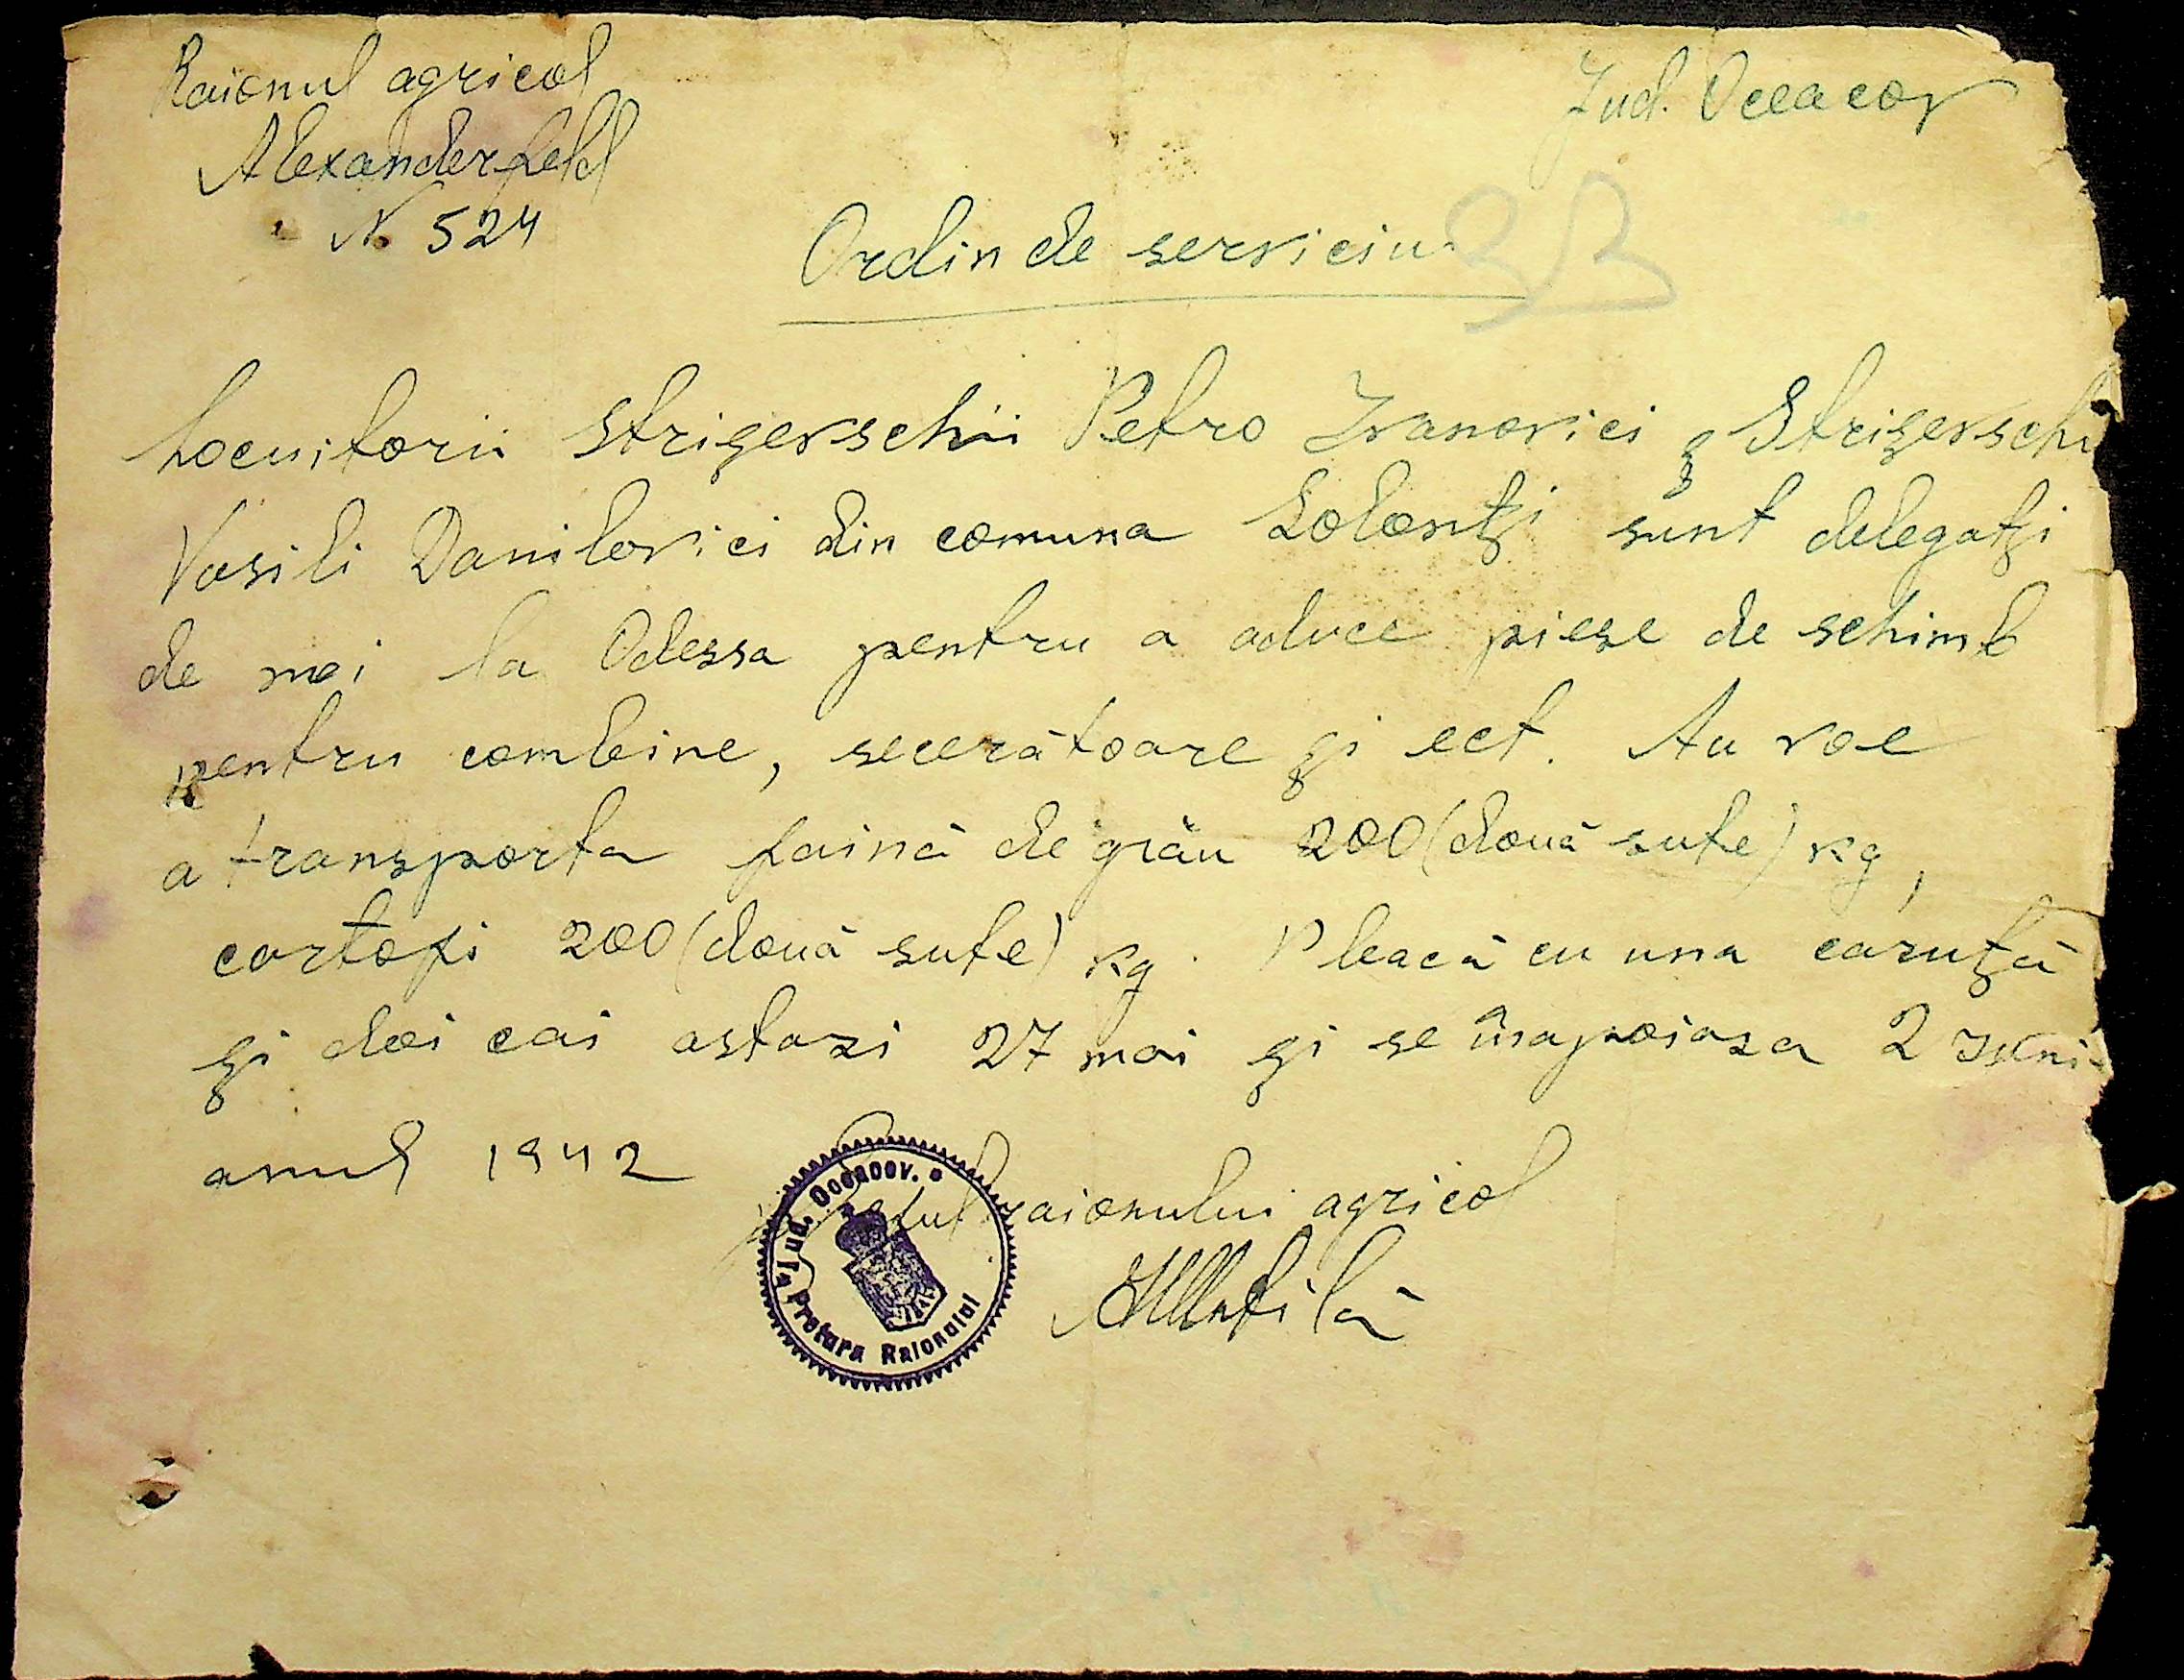 Raionul agricol
Jud. Oceacov
Alexanderfeld
N. 524
Ordin de serviciu
Locuitorii Strijevschii Petro Ivanovici ș Strijevschi
Vasili Danilovici din comuna Solontzi sunt delegatzi
de noi la Odessa pentru a aduce piese de schimb
pentru combine, secerătoare și ect. Au voe
a transporta faină de grâu 200 (două sute) kg,
cartofi 200 (două sute) kg. Pleacă cu una caruță
și doi cai astazi 27 mai și se înapoiaza 2 Iuni
anul 1942
Șeful raionului agricol
Jud. Oceacov.
Pretura Raionului